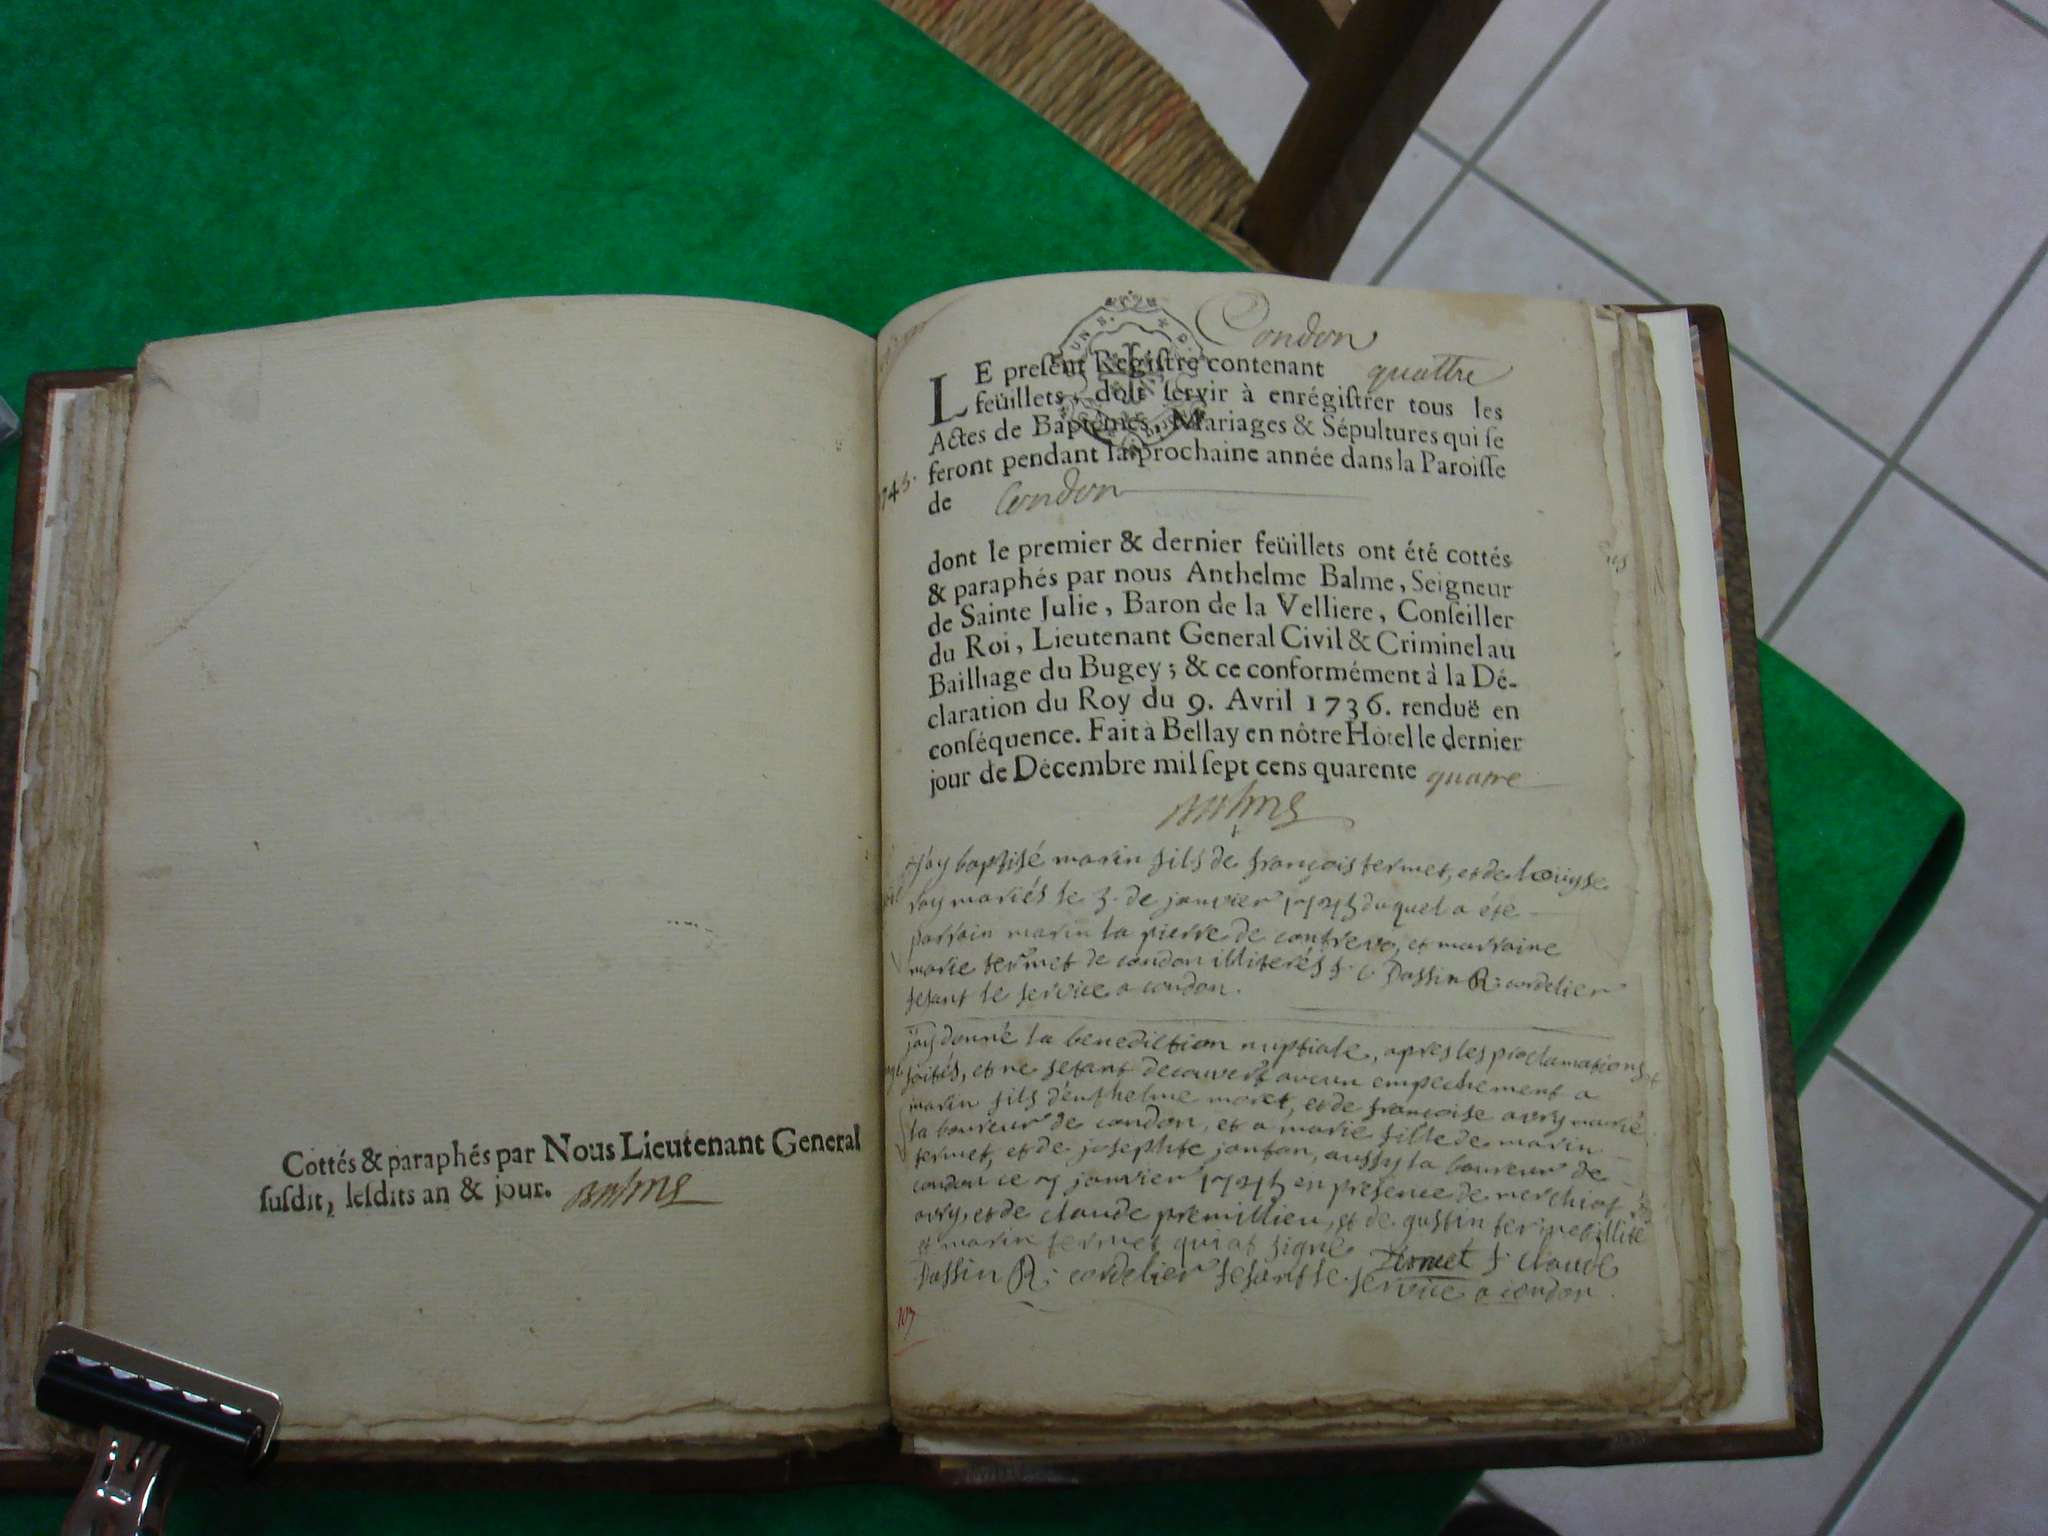 Cottés & paraphés par Nous Lieutenant General
ſuſdit, leſdits an & jour. Balme
Condon
LE preſent Regiſtre contenant quattre
feüillets, doit ſervir à enrégiſtrer tous les
Actes de Baptêmes, Mariages & Sépultures qui ſe
feront pendant la prochaine année dans la Paroiſſe
1745.
de Condon
dont le premier & dernier feüillets ont été cottés
& paraphés par nous Anthelme Balme, Seigneur
de Sainte Julie, Baron de la Velliere, Conſeiller
du Roi, Lieutenant General Civil & Criminel au
Bailliage du Bugey; & ce conformément à la Dé-
claration du Roy du 9. Avril 1736. renduë en
conſéquence. Fait à Bellay en nôtre Hôtel le dernier
jour de Décembre mil ſept cens quarente quatre
Balme
j'ay baptisé marin fils de françois fermet, et de louyse
roy mariés le 3. de janvier 1745 duquel a été
parrain marin la pierre de contrevo, et marraine
marie fermet de condon illiterés f. c Dassin R: cordelier
fesant le service a condon.
j'ay donné la benediction nuptiale, apres les proclamations
faites, et ne setant decouvert aucun empechement a
marin fils d'enthelme moret, et de françoise avry marié
laboureur de condon, et a marie fille de marin
fermet, et de josephte jonton, aussy laboureur de
condon ce 7 janvier 1745 en presence de merchiot
avry, et de claude premillieu, et de gustin fermet illite
et marin fermet qui at signé fermet f. claude
Dassin R: cordelier fesant le service a condon.
107